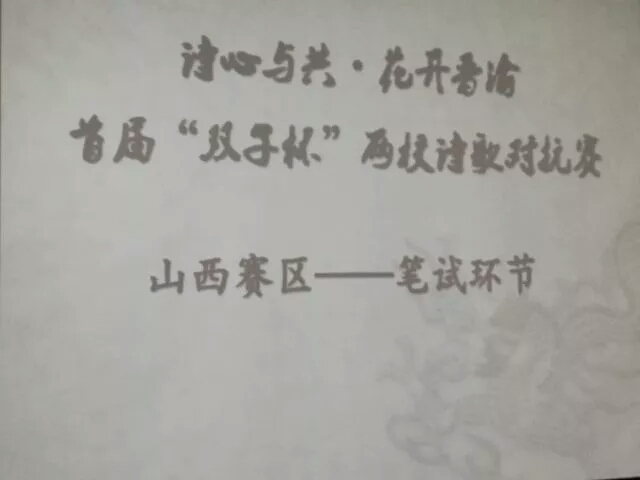 诗心与共·花开晋渝
首届“双子杯”两校诗歌对抗赛
山西赛区——笔试环节